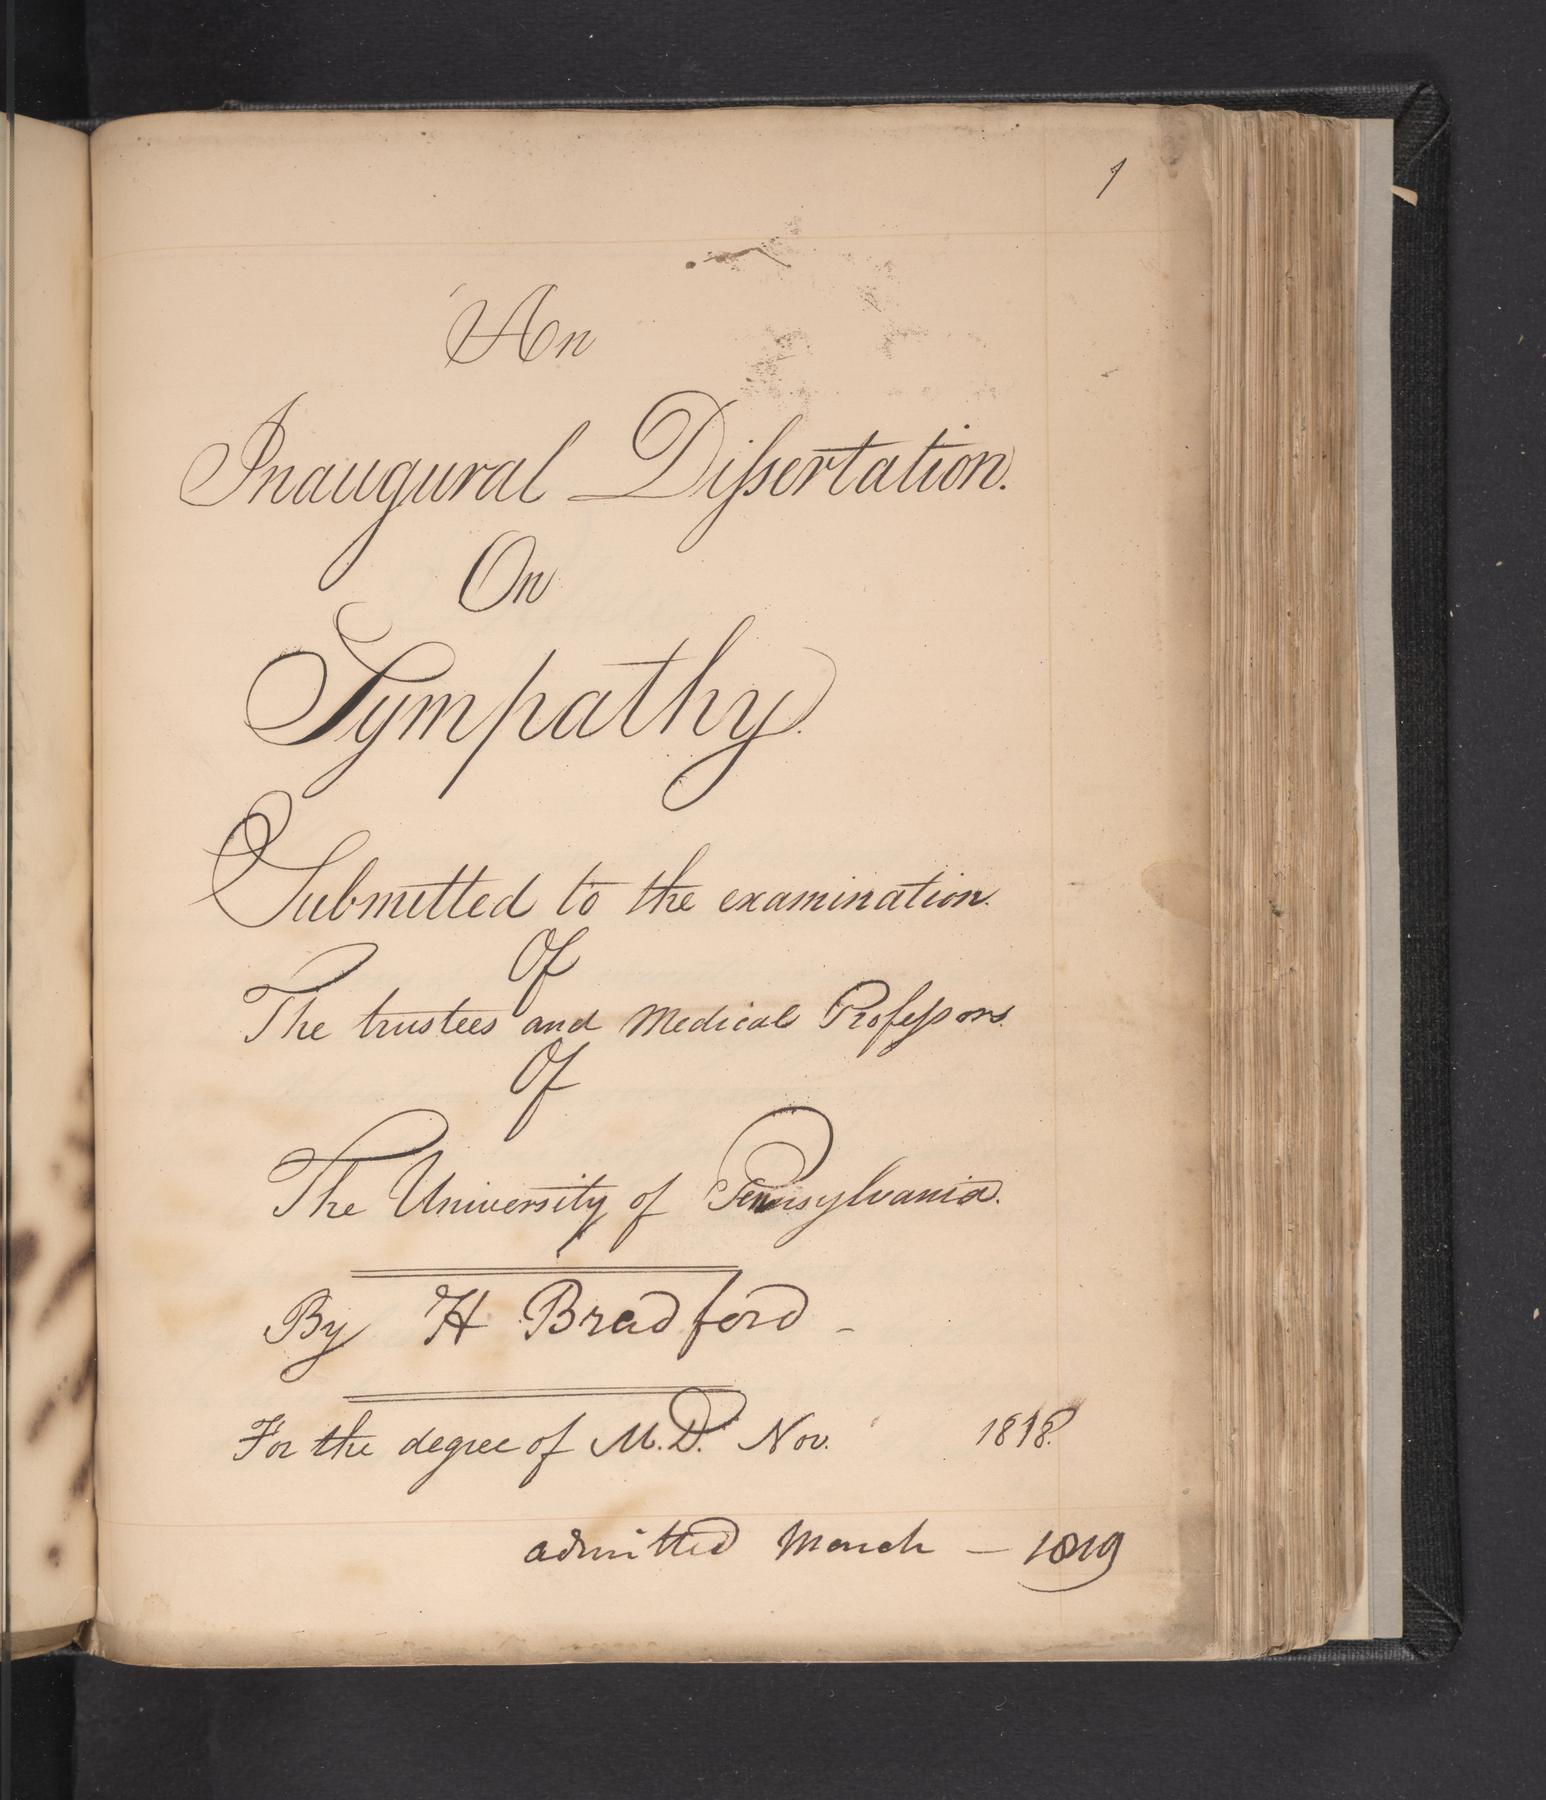 1
An
Inaugural Dissertation.
On
Sympathy.
Submitted to the examination.
Of
The trustees and Medical Professors.
Of
The University of Pennsylvania.
By H Bradford
For the degree of M.D. Nov. 1818.
admitted March — 1819